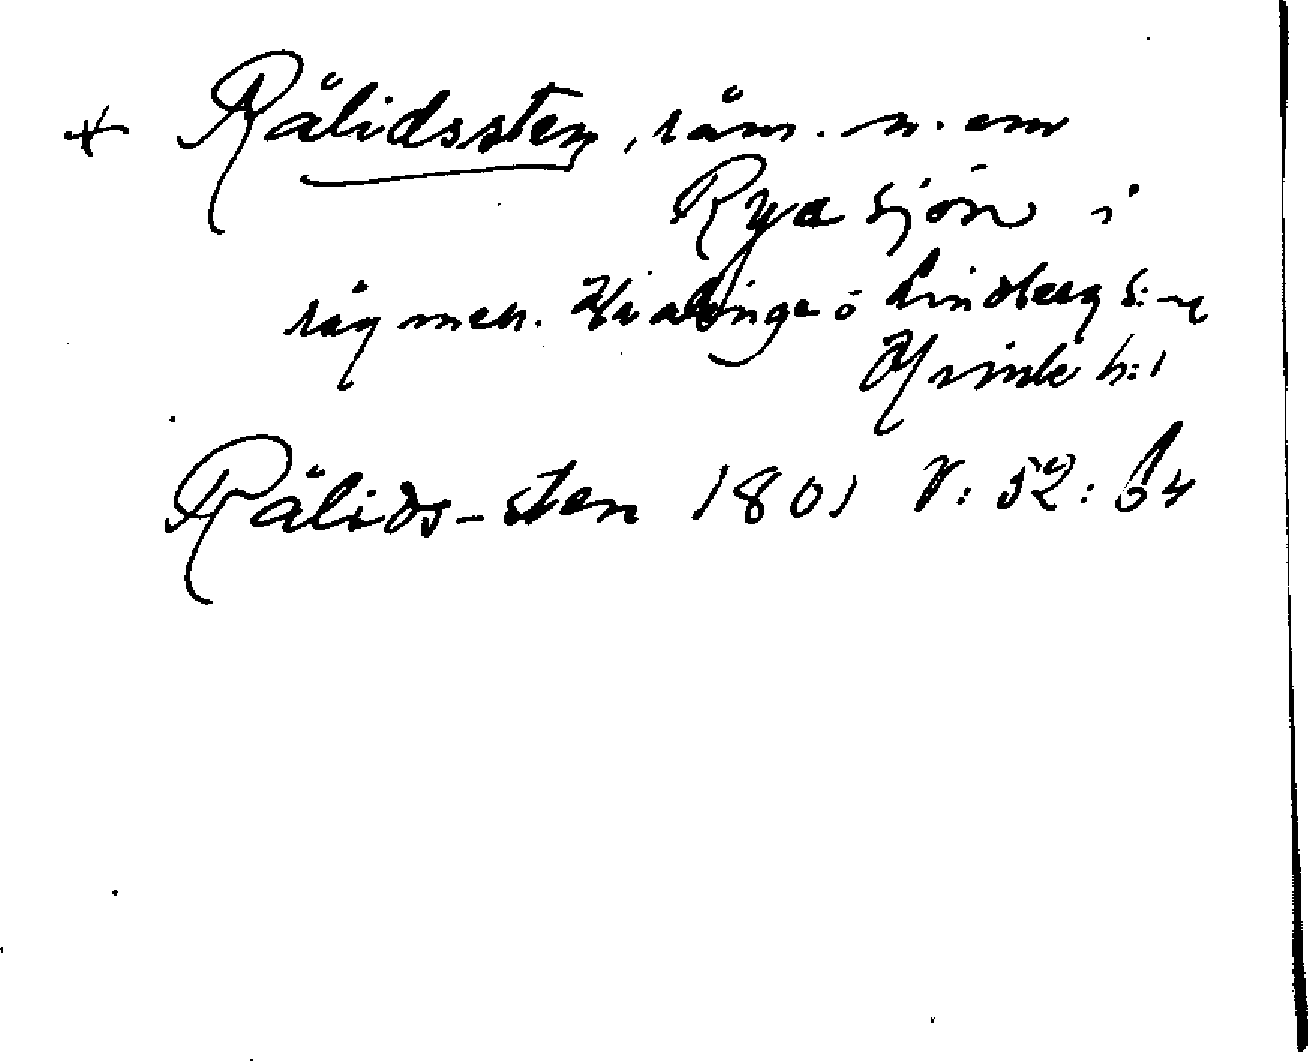 * Rälidssten, råm. n. om
Rya sjön i
råg mell. Kvalinge o Lindberg s:n
Himle h:d
Rälids-sten 1801 V: 52: 64